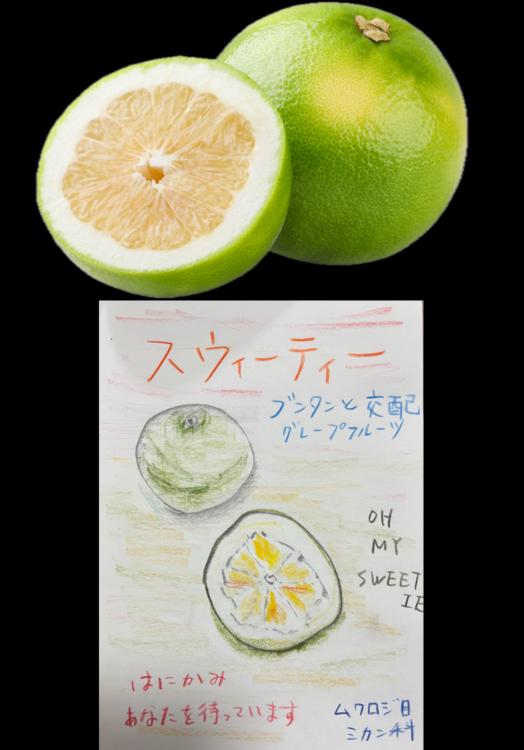 スウィーティー
ブンタンと交配
グレープフルーツ
OH
MY
SWEET
IE
はにかみ
あなたを待っています
ムクロジ目
ミカン科